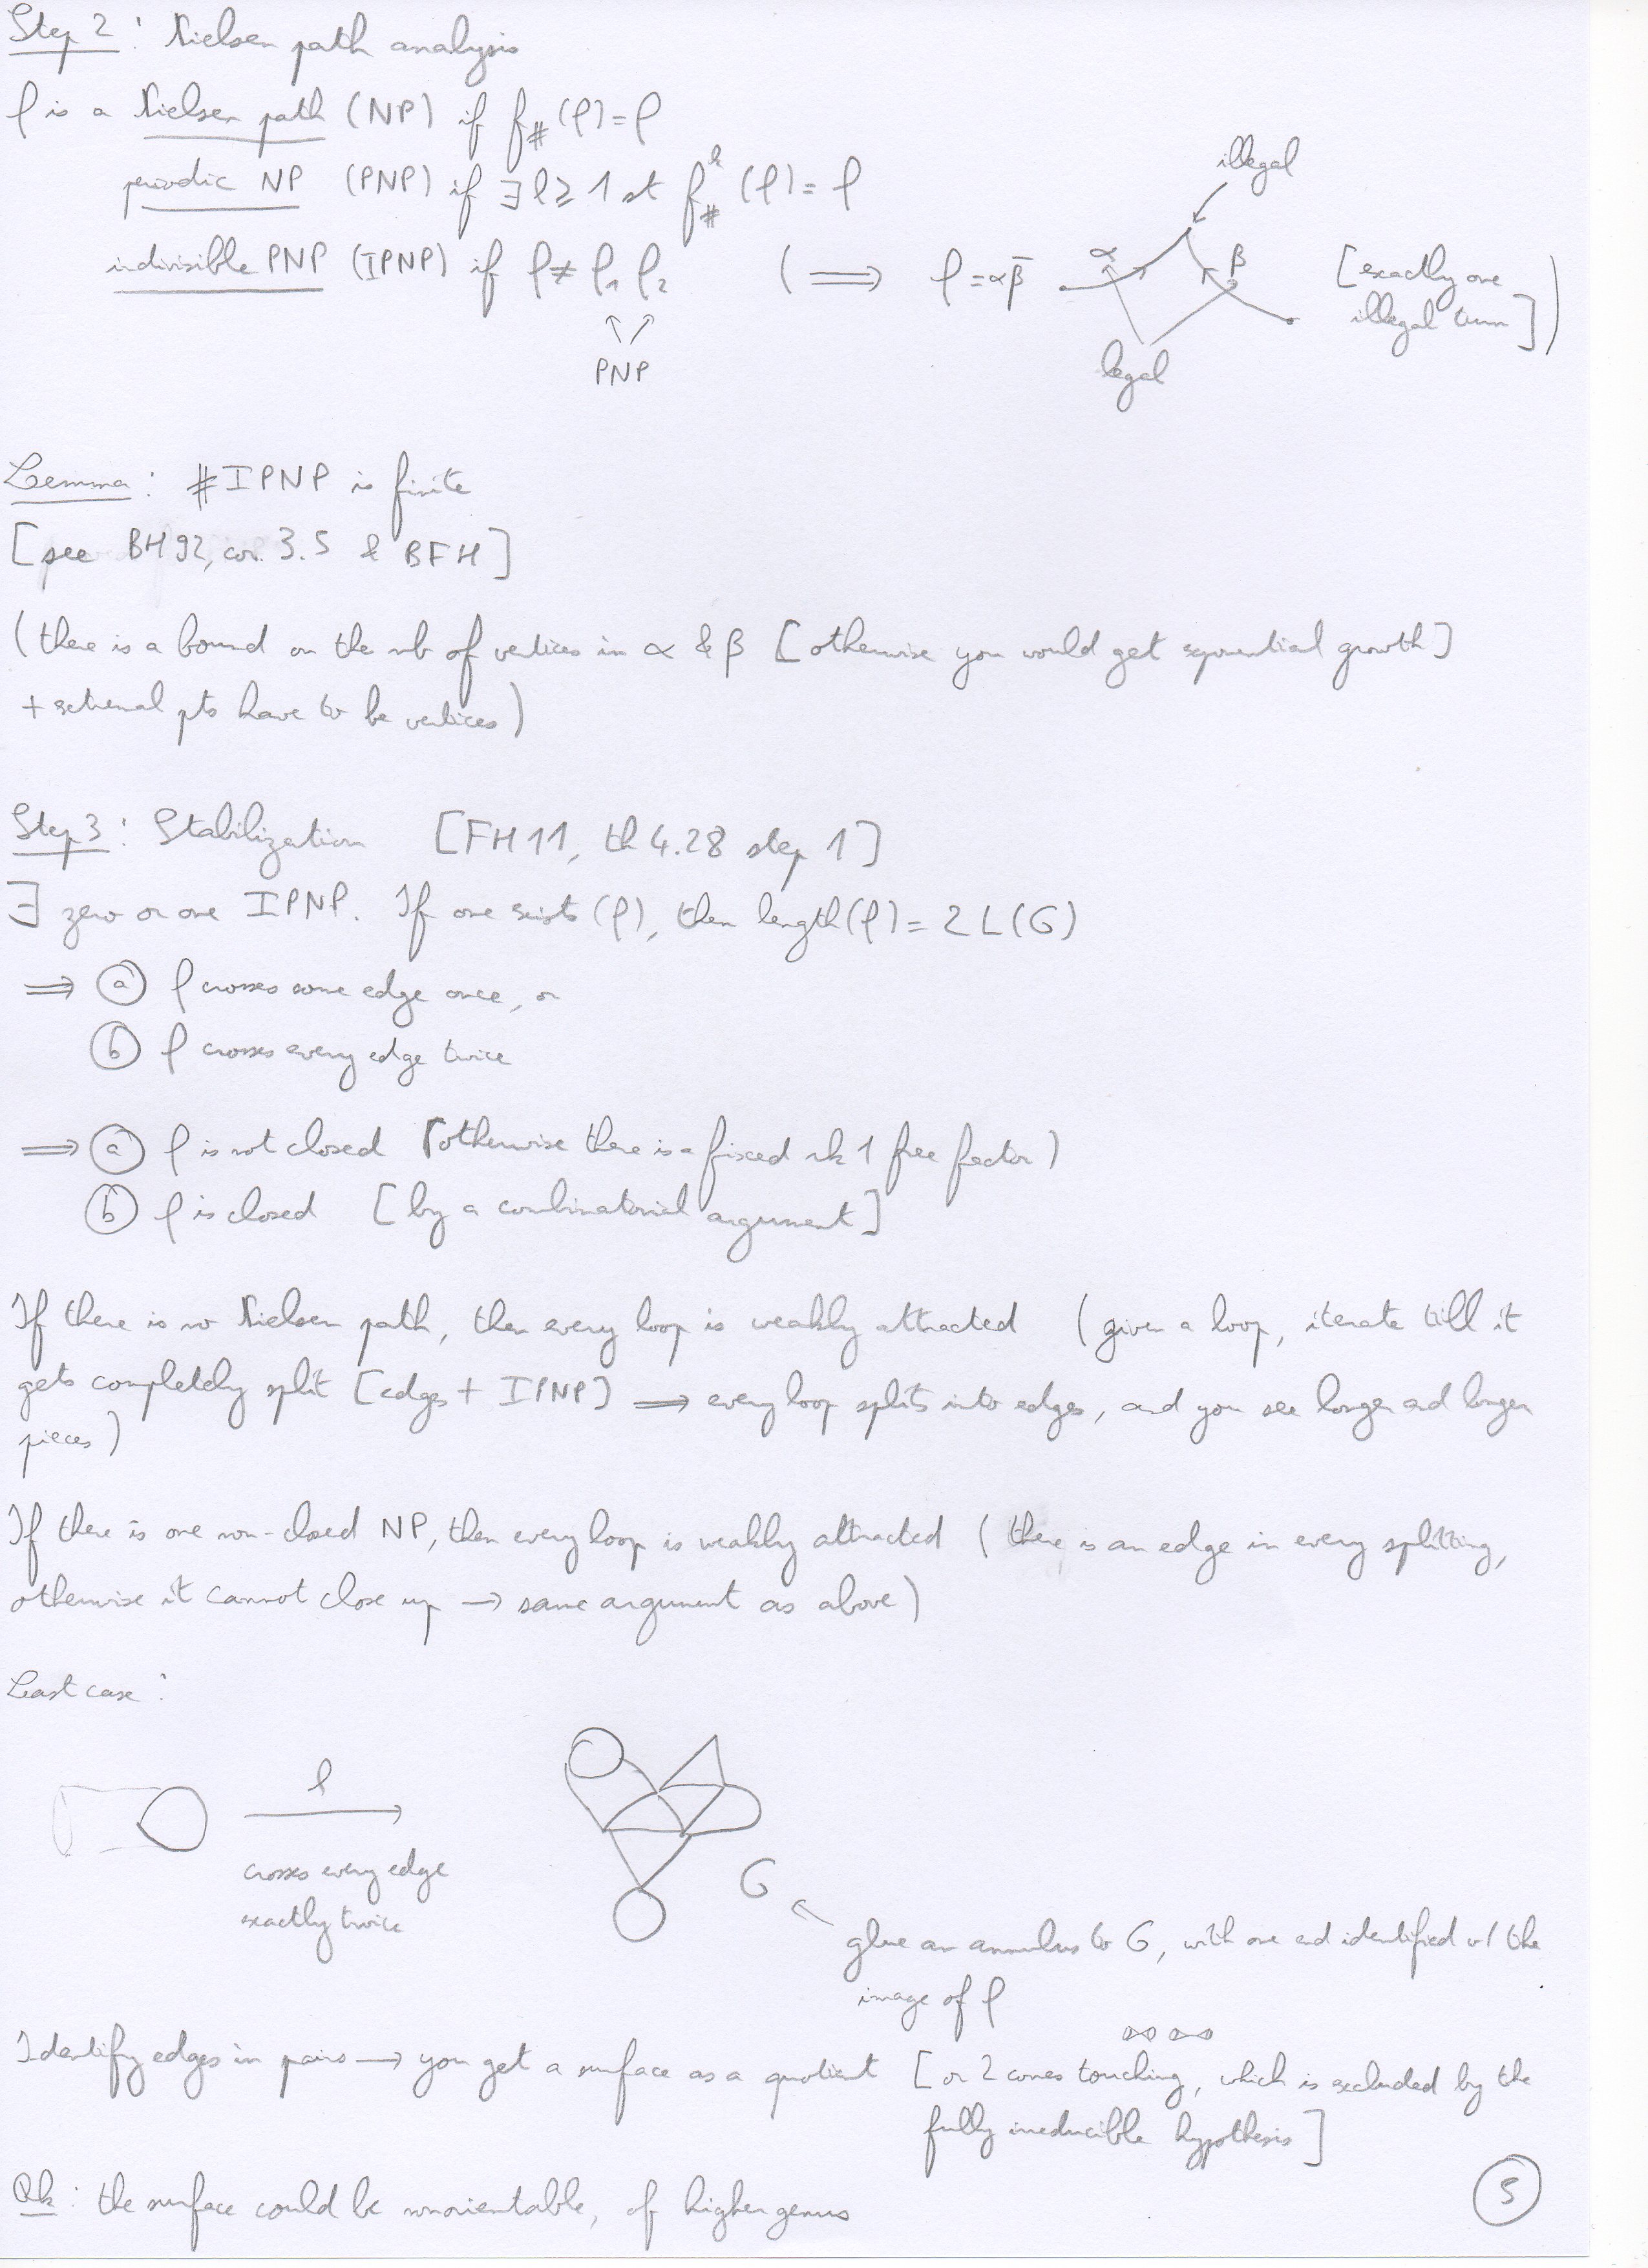 Step 2 : Nielsen path analysis
ρ is a Nielsen path (NP) if f_#(ρ)=ρ
illegal
periodic NP (PNP) if ∃ k ≥ 1 st f_#^k (ρ) = ρ
indivisible PNP (IPNP) if ρ ≠ ρ₁ ρ₂ ( ⟹ ρ = αβ̄ α β [exactly one illegal turn] )
PNP
legal
Lemma : # IPNP is finite
[see BH92, cor. 3.5 & BFH]
(there is a bound on the nb of vertices in α & β [otherwise you would get exponential growth]
+ extremal pts have to be vertices)
Step 3 : Stabilization [FH11, th 4.28 step 1]
∃ zero or one IPNP. If one exists (ρ), then length(ρ) = 2 L(G)
⟹ ⓐ ρ crosses some edge once, or
ⓑ ρ crosses every edge twice
⟹ ⓐ ρ is not closed (otherwise there is a fixed rk 1 free factor)
ⓑ ρ is closed [by a combinatorial argument]
If there is no Nielsen path, then every loop is weakly attracted (given a loop, iterate till it
gets completely split [edges + IPNP] ⟹ every loop splits into edges, and you see longer and longer
pieces)
If there is one non-closed NP, then every loop is weakly attracted (there is an edge in every splitting,
otherwise it cannot close up → same argument as above)
Last case :
ρ
crosses every edge
exactly twice
G
glue an annulus to G, with one end identified w/ the
image of ρ
Identify edges in pairs → you get a surface as a quotient [or 2 cones touching, which is excluded by the
fully irreducible hypothesis]
Rk : the surface could be nonorientable, of higher genus
5